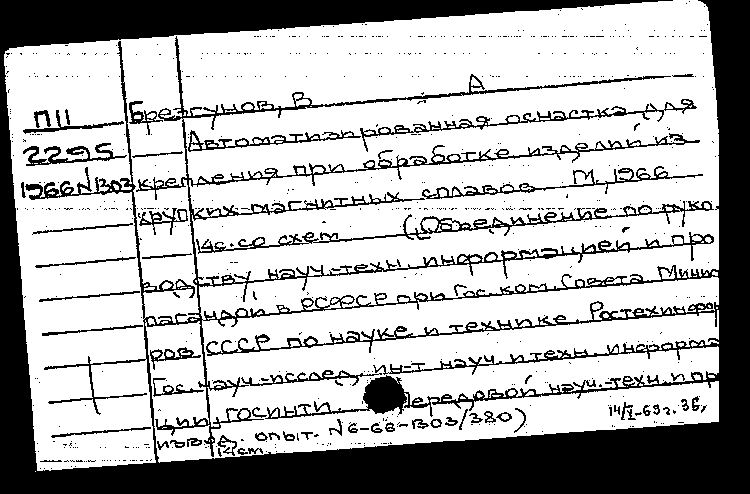 П11 Брезгунов, В А
2295 Автоматизированная оснастка для
1966 №В03 крепления при обработке изделий из
хрупких магнитных сплавов М., 1966
14с. со схем (Объединение по руко
водству науч.-техн. информацией и про
пагандой в РСФСР при Гос. ком. Совета Минист
ров СССР по науке и технике. Ростехинформ
Гос. науч.-исслед. ин-т науч. и техн. информа
ции, ГОСИНТИ. Передовой науч.-техн. и пр
извод. опыт. №6-66-В03/380) 14/I-69г. 36,
14см.